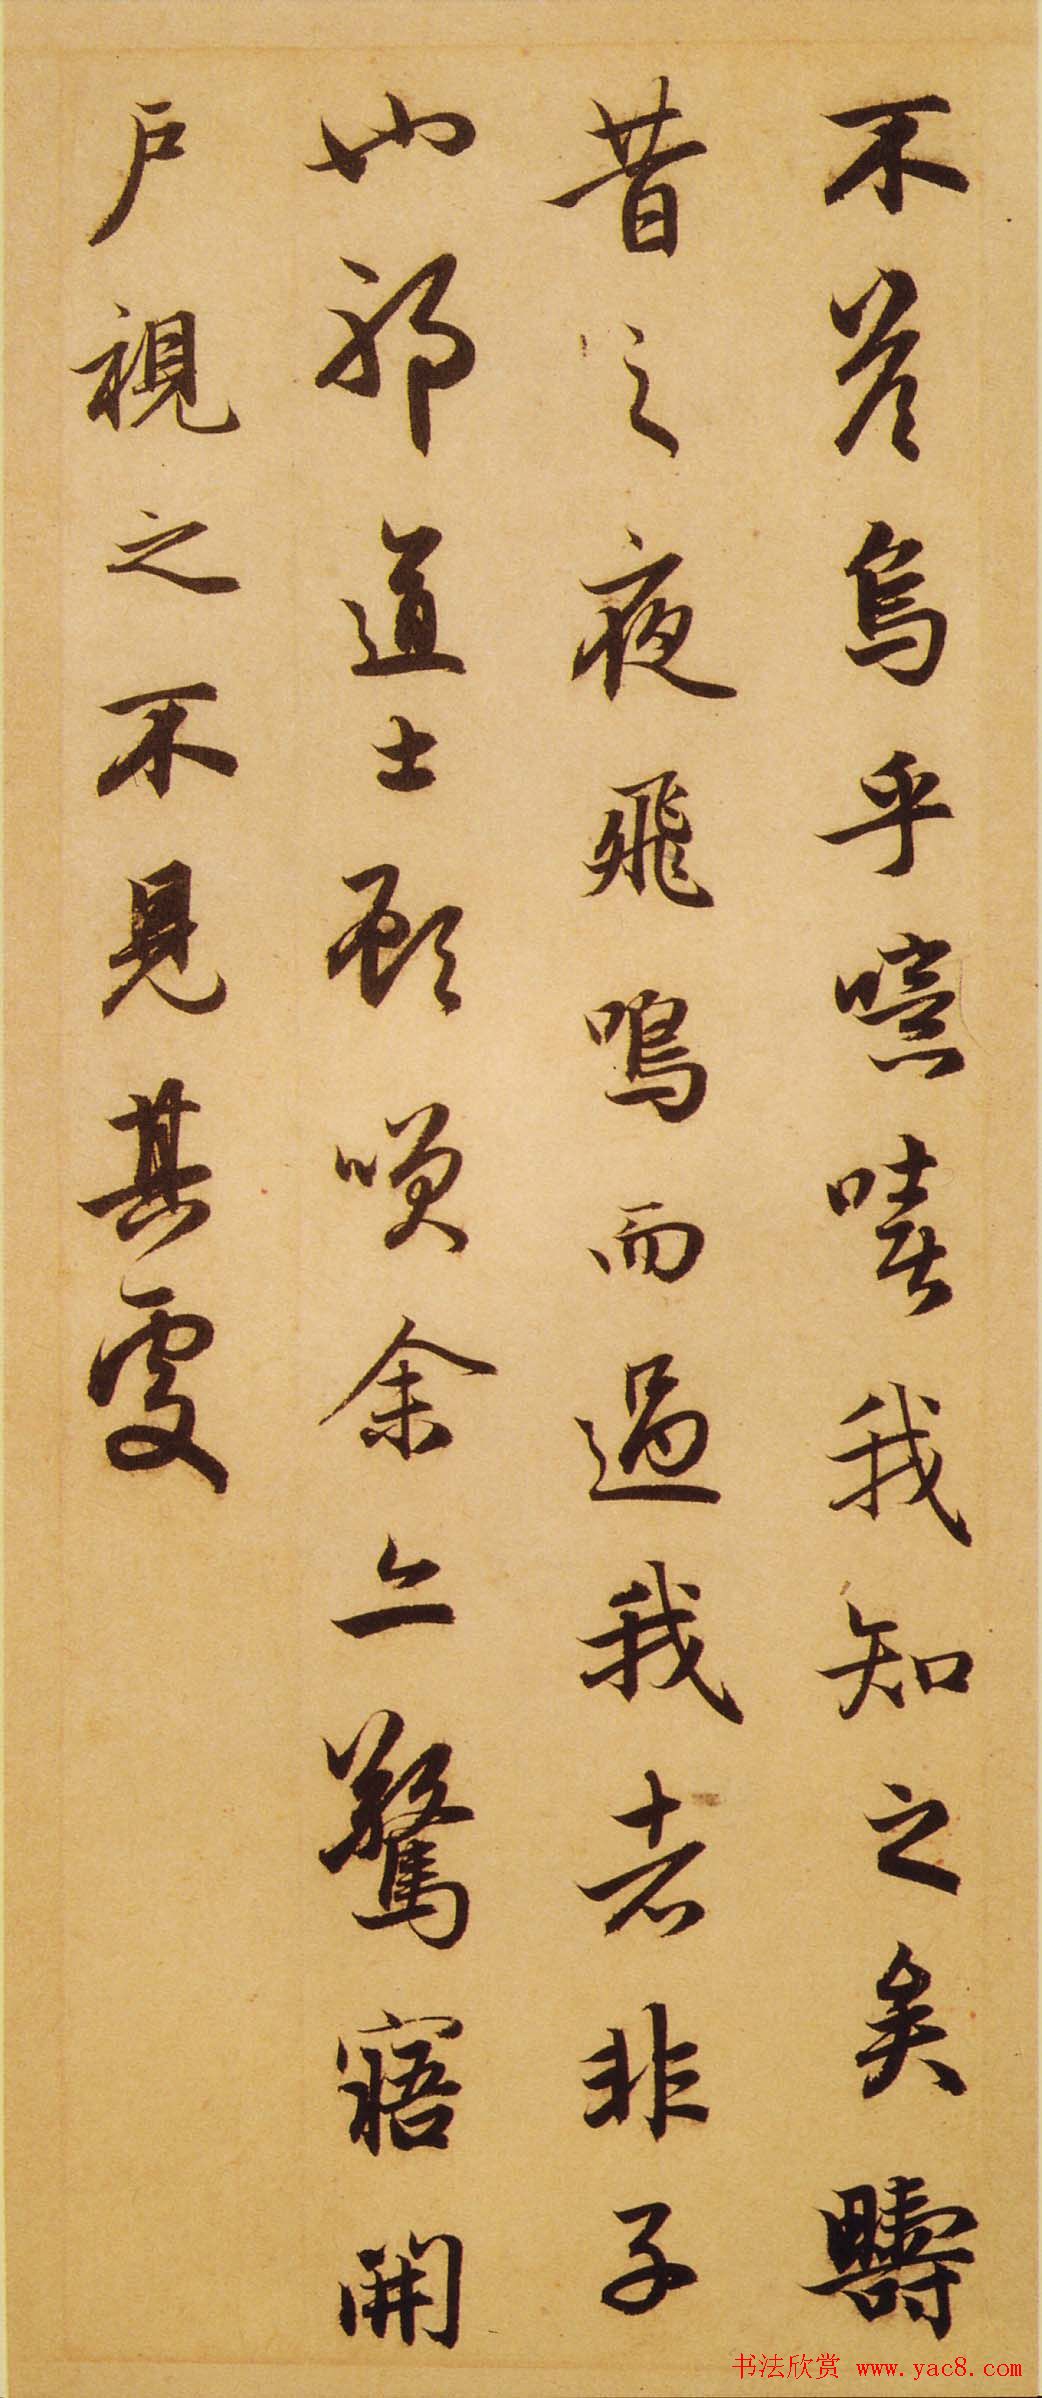 不答烏乎噫嘻我知之矣疇
昔之夜飛鳴而過我者非子
也邪道士顧笑余亦驚寤開
戶視之不見其處
书法欣赏 www.yac8.com